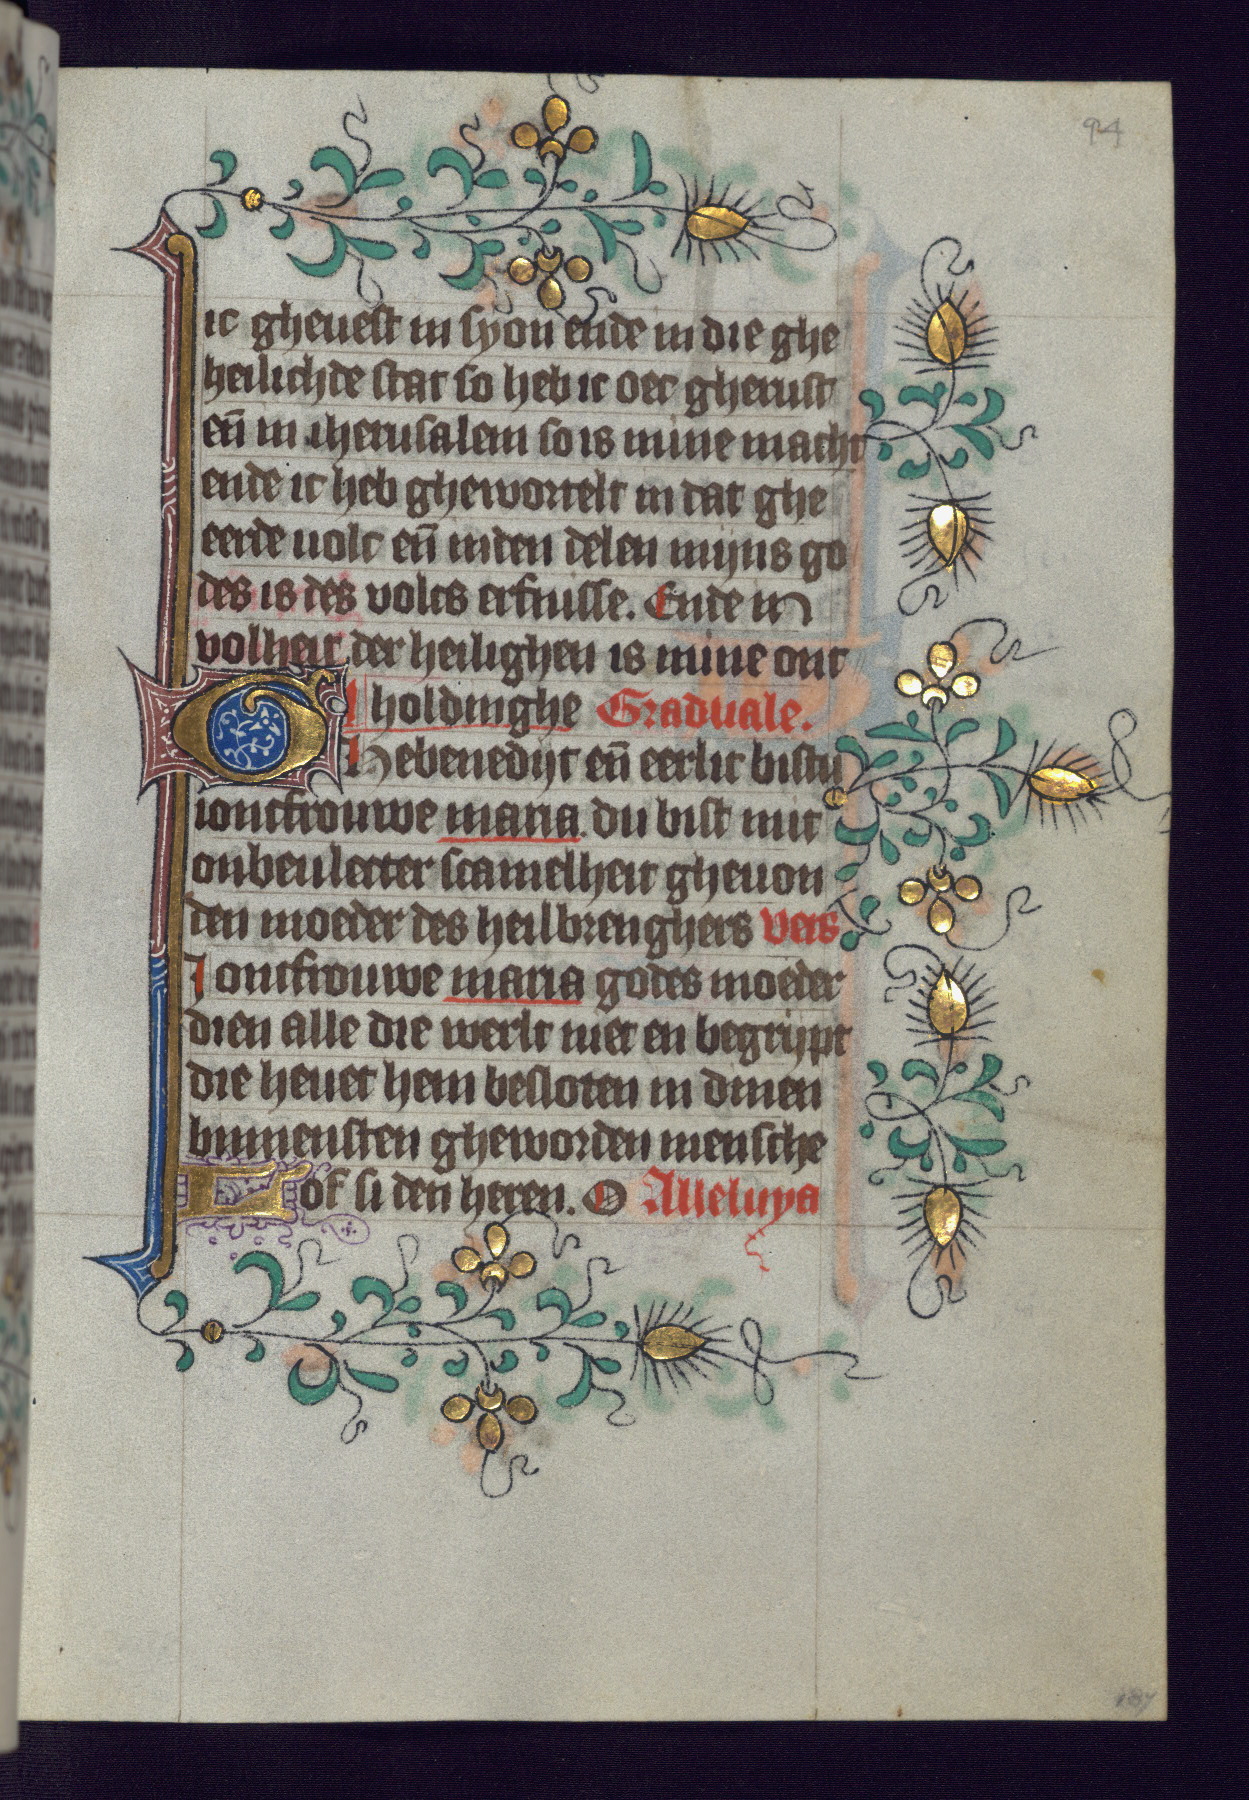 94
ic gheuest in syon ende in die ghe
heilichde stat so heb ic oec gherust
en̄ in iherusalem so is mine macht
ende ic heb ghewortelt in dat ghe
eerde uolc en̄ inden delen mijns go
des is des volcs erfnisse. Ende in
volheit der heilighen is mine ont
holdinghe Graduale.
Ghebenedijt en̄ eerlic bistu
ioncfrouwe maria du bist mit
onbeulecter scamelheit gheuon
den moeder des heilbrenghers vers
Joncfrouwe maria godes moeder
dien alle die werlt niet en begrijpt
die heuet hem besloten in dinen
binnensten gheworden mensche
Lof si den heren. O Alleluya
187